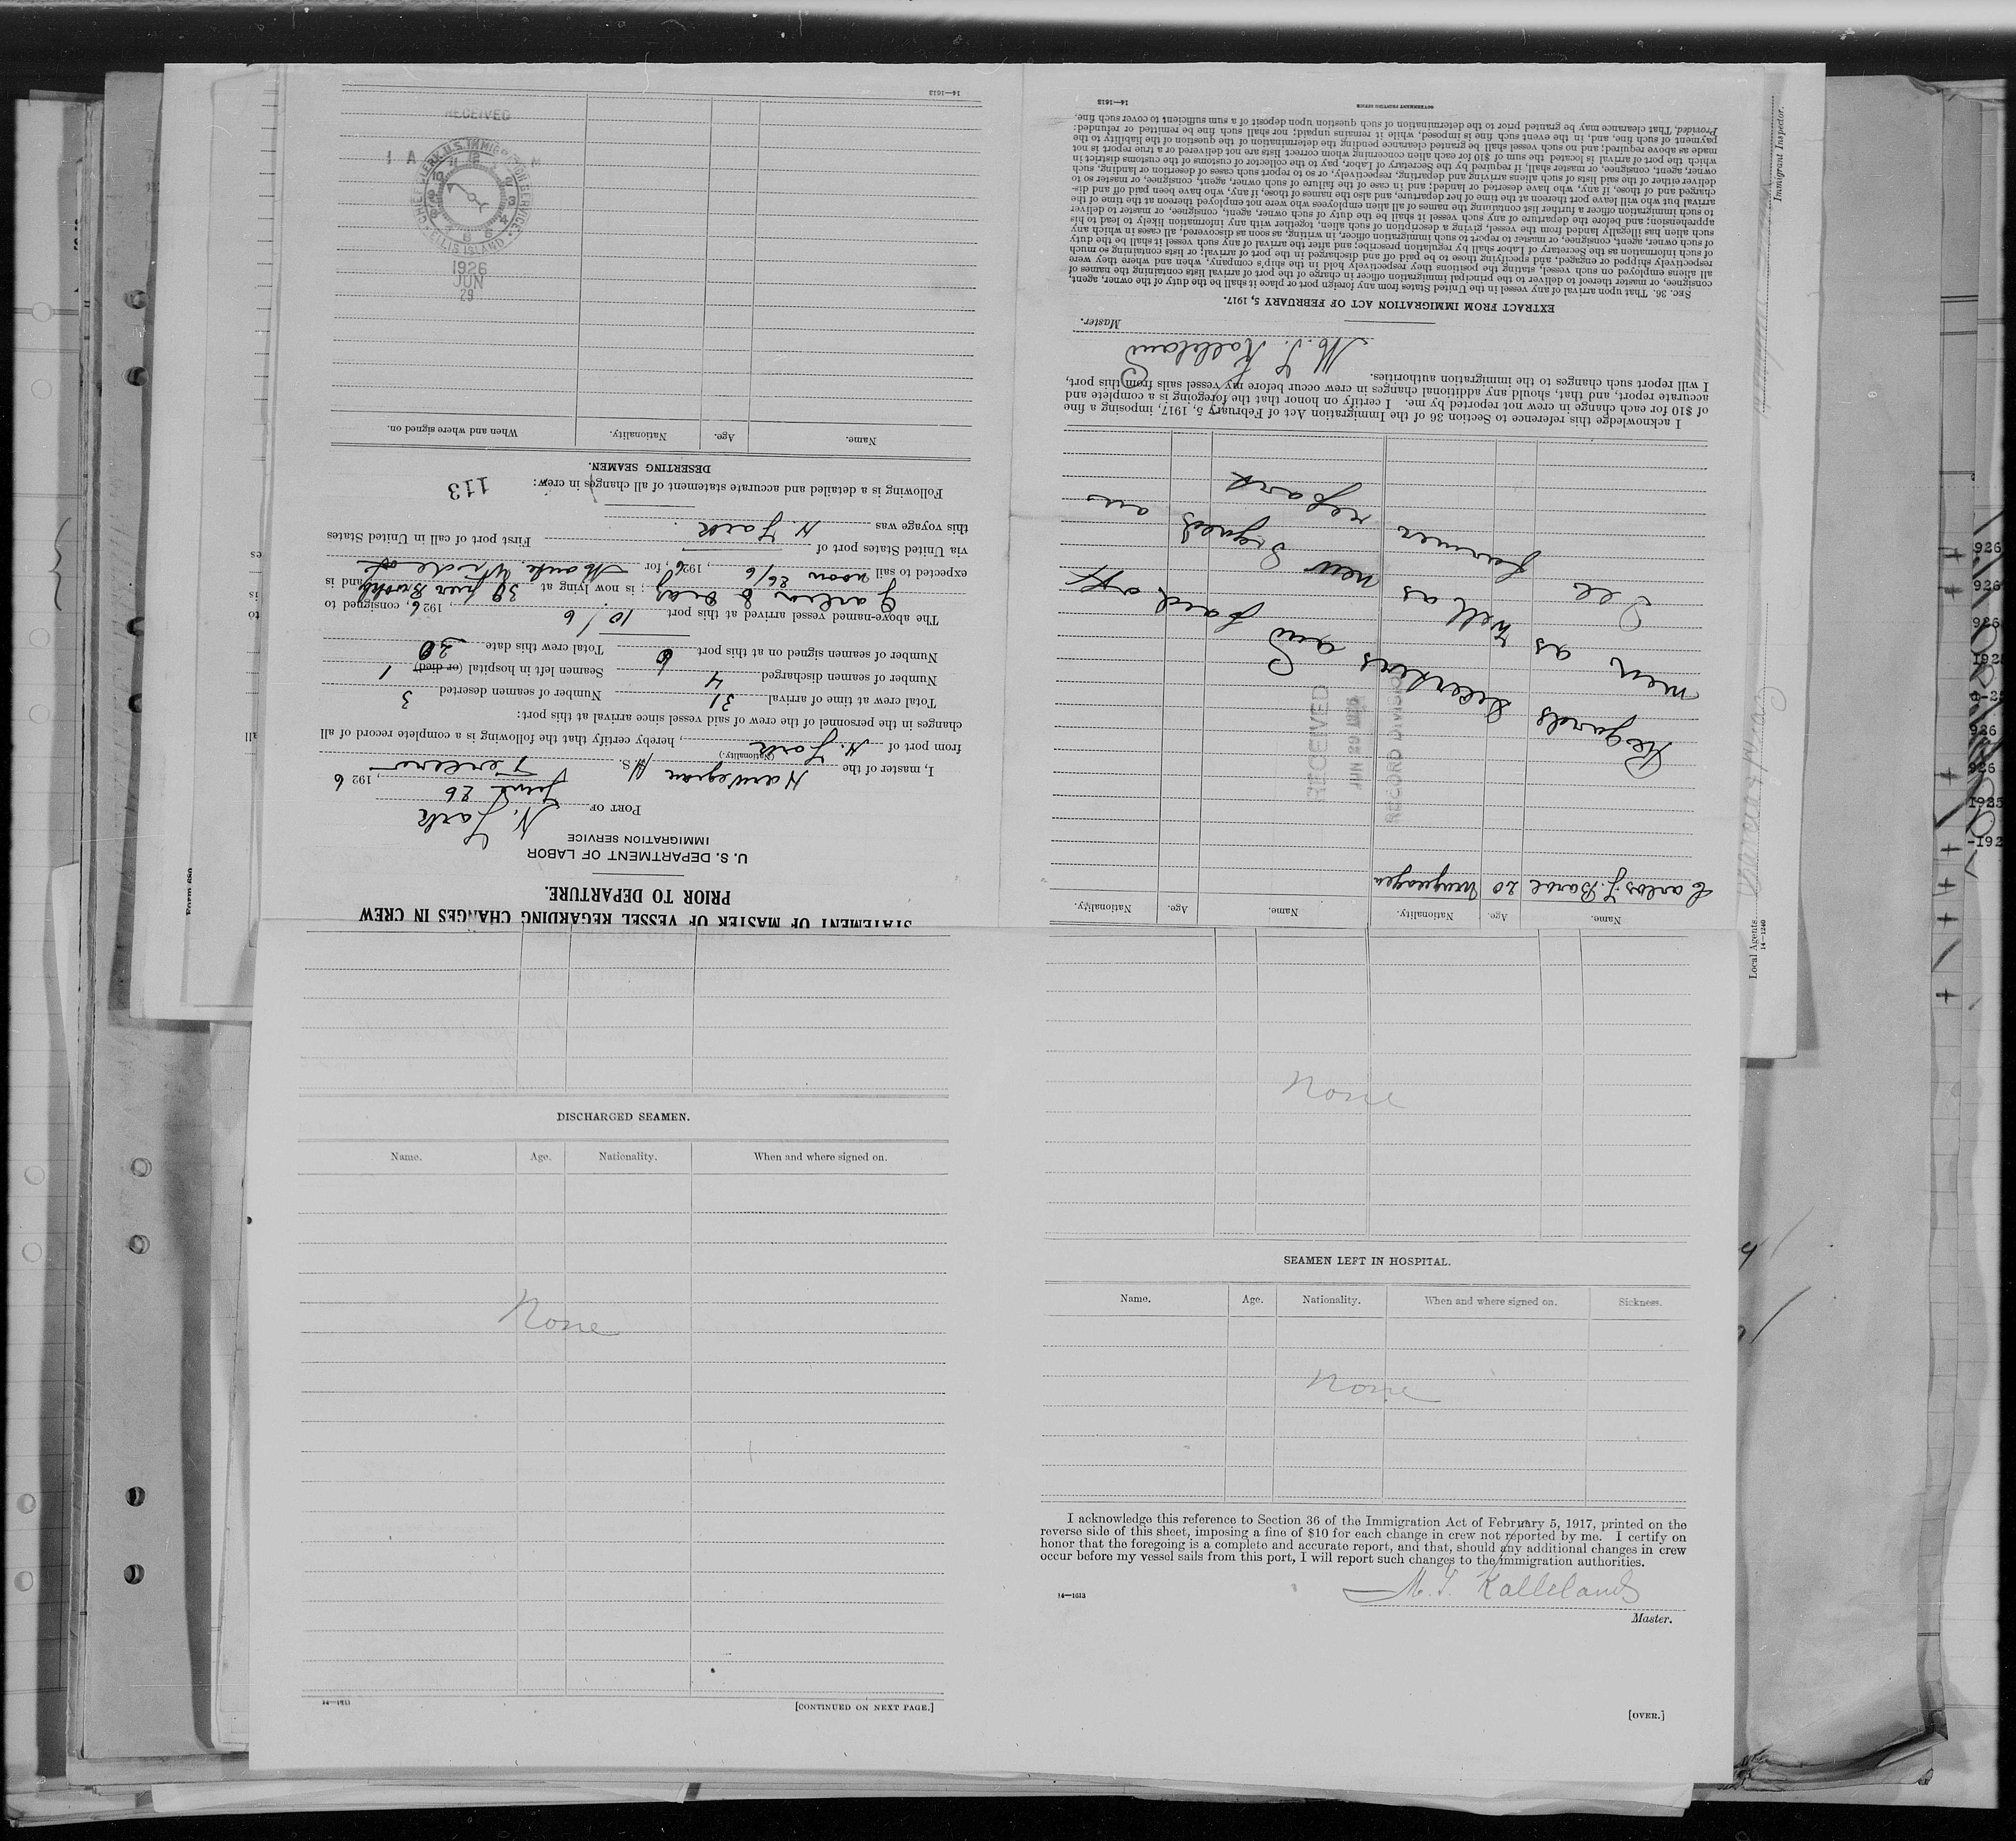 STATEMENT OF MASTER OF VESSEL REGARDING CHANGES IN CREW
PRIOR TO DEPARTURE.
U. S. DEPARTMENT OF LABOR
IMMIGRATION SERVICE
PORT OF N. York
June 26, 1926
I, master of the Norwegian M/S.
(Nationality.)
from port of N. York, hereby certify that the following is a complete record of all
changes in the personnel of the crew of said vessel since arrival at this port:
Total crew at time of arrival 31 Number of seamen deserted 3
Number of seamen discharged 4 Seamen left in hospital (or died) 1
Number of seamen signed on at this port 6 Total crew this date 30
The above-named vessel arrived at this port 10/6, 1926, consigned to
Garcia & Diaz; is now lying at pier and is
expected to sail noon 26/6, 1926, for
via United States port of First port of call in United States
this voyage was N. York.
Following is a detailed and accurate statement of all changes in crew: 113
DESERTING SEAMEN.
Name. Age. Nationality. When and where signed on.
RECEIVED
CHIEF CLERK, U.S. IMMIGRATION SERVICE
ELLIS ISLAND
1926
JUN
29
14—1613
Name. Age. Nationality. Name. Age. Nationality.
Carlos J. 20
Regards deserters and paid off
men as well as new signed on
See former report
RECEIVED
JUN 29 1926
RECORD DIVISION
I acknowledge this reference to Section 36 of the Immigration Act of February 5, 1917, imposing a fine
of $10 for each change in crew not reported by me. I certify on honor that the foregoing is a complete and
accurate report, and that, should any additional changes in crew occur before my vessel sails from this port,
I will report such changes to the immigration authorities.
M. T. Kalleland
Master.
EXTRACT FROM IMMIGRATION ACT OF FEBRUARY 5, 1917.
SEC. 36. That upon arrival of any vessel in the United States from any foreign port or place it shall be the duty of the owner, agent,
consignee, or master thereof to deliver to the principal immigration officer in charge of the port of arrival lists containing the names of
all aliens employed on such vessel, stating the positions they respectively hold in the ship's company, when and where they were
respectively shipped or engaged, and specifying those to be paid off and discharged in the port of arrival; or lists containing so much
of such information as the Secretary of Labor shall by regulation prescribe; and after the arrival of any such vessel it shall be the duty
of such owner, agent, consignee, or master to report to such immigration officer, in writing, as soon as discovered, all cases in which any
such alien has illegally landed from the vessel, giving a description of such alien, together with any information likely to lead to his
apprehension; and before the departure of any such vessel it shall be the duty of such owner, agent, consignee, or master to deliver
to such immigration officer a further list containing the names of all alien employees who were not employed thereon at the time of the
arrival but who will leave port thereon at the time of her departure, and also the names of those, if any, who have been paid off and dis-
charged and of those, if any, who have deserted or landed; and in case of the failure of such owner, agent, consignee, or master so to
deliver either of the said lists of such aliens arriving and departing, respectively, or so to report such cases of desertion or landing, such
owner, agent, consignee, or master, shall, if required by the Secretary of Labor, pay to the collector of customs of the customs district in
which the port of arrival is located the sum of $10 for each alien concerning whom correct lists are not delivered or a true report is not
made as above required; and no such vessel shall be granted clearance pending the determination of the question of the liability to the
payment of such fine, and, in the event such fine is imposed, while it remains unpaid; nor shall such fine be remitted or refunded:
Provided, That clearance may be granted prior to the determination of such question upon deposit of a sum sufficient to cover such fine.
14—1613 GOVERNMENT PRINTING OFFICE
Immigrant Inspector.
Local Agents.
14—1240
DISCHARGED SEAMEN.
Name. Age. Nationality. When and where signed on.
None
[CONTINUED ON NEXT PAGE.]
None
SEAMEN LEFT IN HOSPITAL.
Name. Age. Nationality. When and where signed on. Sickness.
None
I acknowledge this reference to Section 36 of the Immigration Act of February 5, 1917, printed on the
reverse side of this sheet, imposing a fine of $10 for each change in crew not reported by me. I certify on
honor that the foregoing is a complete and accurate report, and that, should any additional changes in crew
occur before my vessel sails from this port, I will report such changes to the immigration authorities.
M. T. Kalleland
14—1613
Master.
[OVER.]